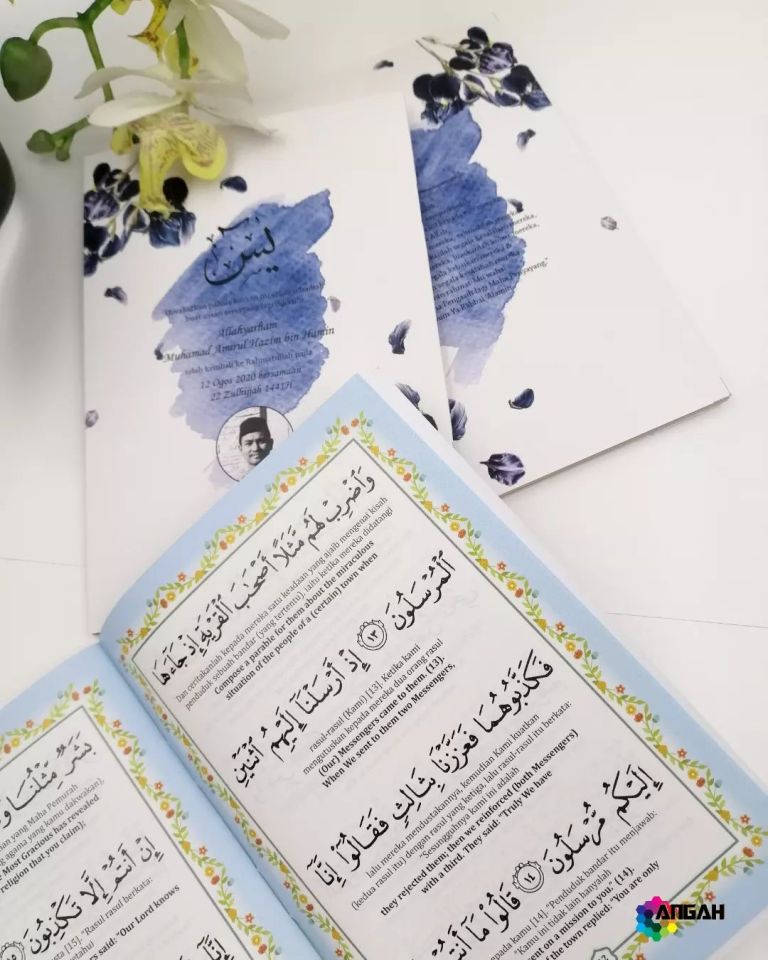 يسٓ
Allahyarham
Muhamad Amirul Hazim bin Hamin
telah kembali ke Rahmatullah pada
12 Ogos 2020 bersamaan
22 Zulhijjah 1441H
وَٱضْرِبْ لَهُم مَّثَلًا أَصْحَٰبَ ٱلْقَرْيَةِ إِذْ جَآءَهَا
Dan ceritakanlah kepada mereka satu keadaan yang ajaib mengenai kisah
penduduk sebuah bandar (yang tertentu), iaitu ketika mereka didatangi
Compose a parable for them about the miraculous
situation of the people of a (certain) town when
ٱلْمُرْسَلُونَ ١٣ إِذْ أَرْسَلْنَآ إِلَيْهِمُ ٱثْنَيْنِ
rasul-rasul (Kami) [13]. Ketika kami
mengutuskan kepada mereka dua orang rasul
(Our) Messengers came to them. (13).
When We sent to them two Messengers,
فَكَذَّبُوهُمَا فَعَزَّزْنَا بِثَالِثٍ فَقَالُوٓا۟ إِنَّآ
lalu mereka mendustakannya, kemudian Kami kuatkan
(kedua rasul itu) dengan rasul yang ketiga, lalu rasul-rasul itu berkata:
"Sesungguhnya kami ini adalah
they rejected them; then we reinforced (both Messengers)
with a third. They said: "Truly We have
إِلَيْكُم مُّرْسَلُونَ ١٤ قَالُوا۟ مَآ أَنتُمْ
kepada kamu [14]. "Penduduk bandar itu menjawab:
"Kamu ini tidak lain hanyalah
sent on a mission to you". (14).
of the town replied: "You are only
بَشَرٌ مِّثْلُنَا
yang Maha Pemurah
agama yang kamu dakwakan),
Most Gracious has revealed
religion that you claim);
إِنْ أَنتُمْ إِلَّا تَكْذِبُونَ ١٥
[15]. "Rasul rasul berkata:
said: "Our Lord knows
ANGAH